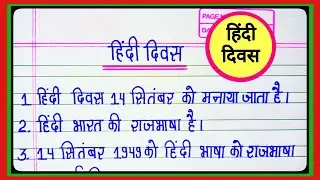 PAGE
DATE
हिंदी दिवस
हिंदी
दिवस
1. हिंदी दिवस 14 सितंबर को मनाया जाता है।
2. हिंदी भारत की राजभाषा है।
3. 14 सितंबर 1949 को हिंदी भाषा को राजभाषा